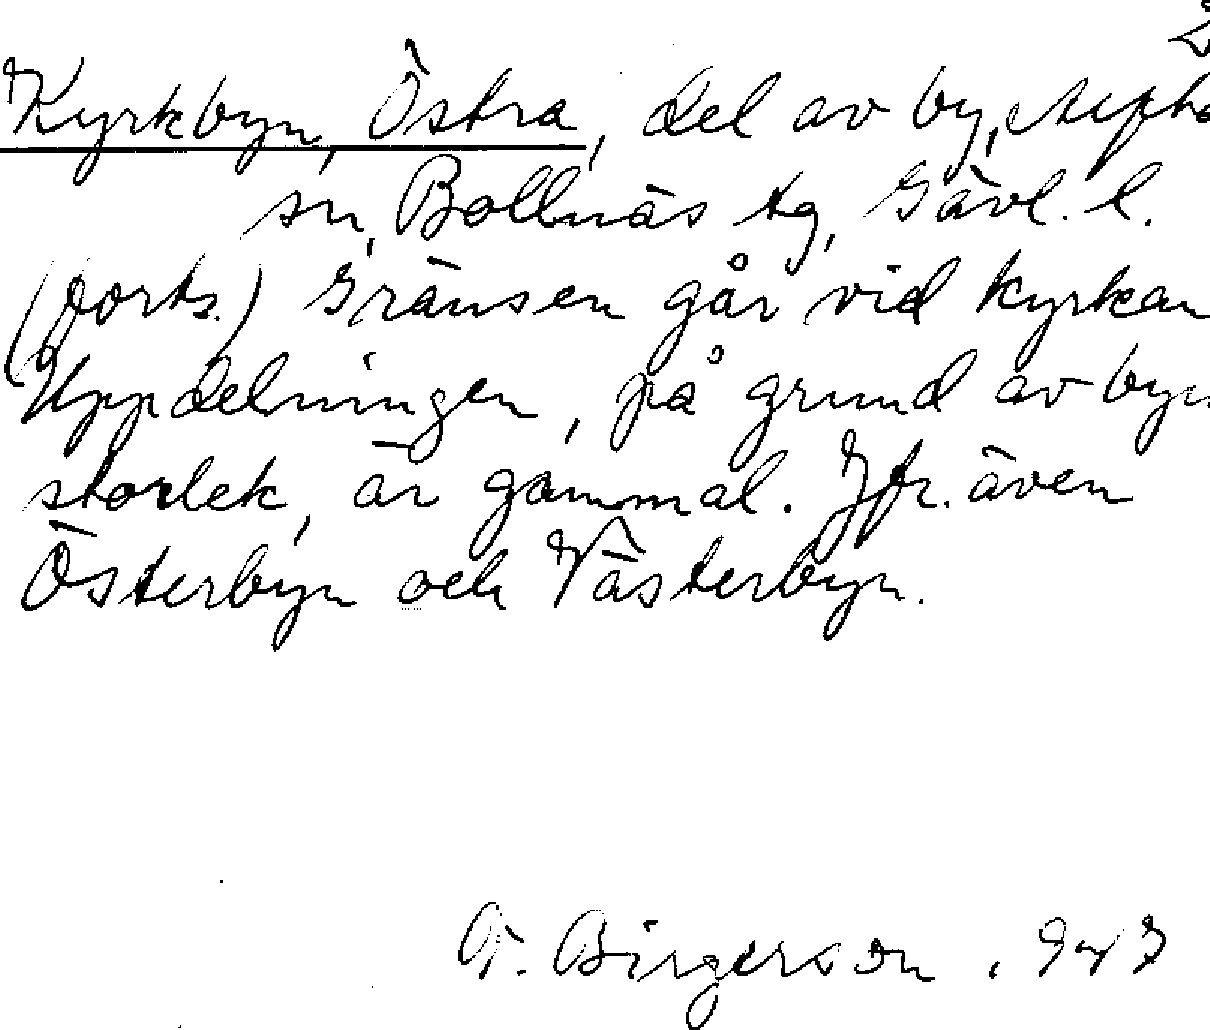 2
Kyrkbyn, Östra, del av by, Alfta
sn, Bollnäs tg, Gävl. l.
(forts.) Gränsen går vid kyrkan
Uppdelningen, på grund av byn
storlek, är gammal. Jfr. även
Österbyn och Västerbyn.
Birgerson